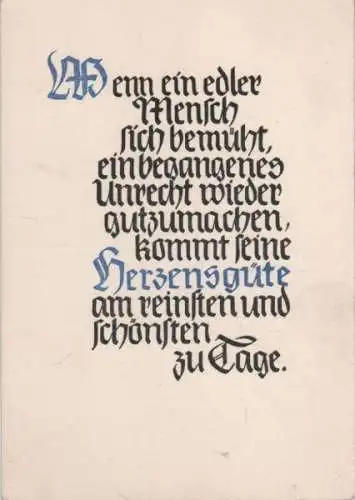 Wenn ein edler
Mensch
sich bemüht,
ein begangenes
Unrecht wieder
gutzumachen,
kommt seine
Herzensgüte
am reinsten und
schönsten
zu Tage.